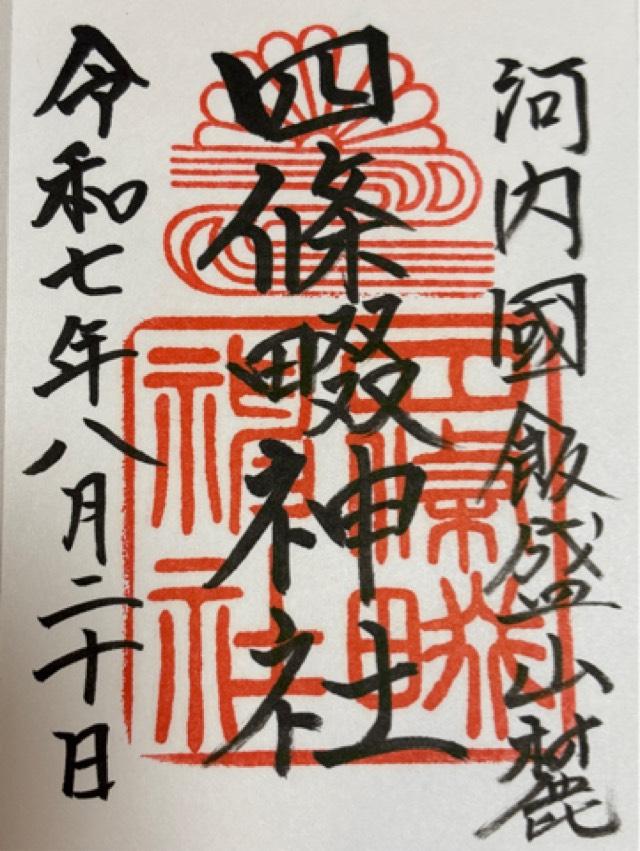 河内國飯盛山麓
四條畷神社
令和七年八月二十日